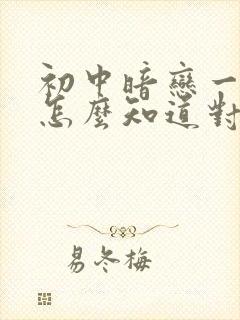 初中暗戀一
怎麼知道對
易冬梅